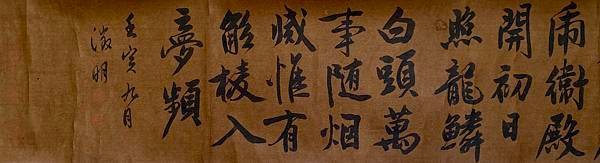 兩衛殿
開初日
照龍鱗
白頭萬
事随烟
滅惟有
觚棱入
夢頻
壬寅九月
徵明